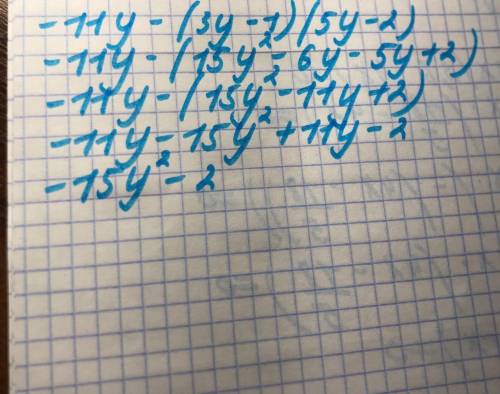 -11y - (3y-1)(5y-2)
-11y - (15y² - 6y - 5y + 2)
-11y - (15y² - 11y + 2)
-11y - 15y² + 11y - 2
-15y² - 2